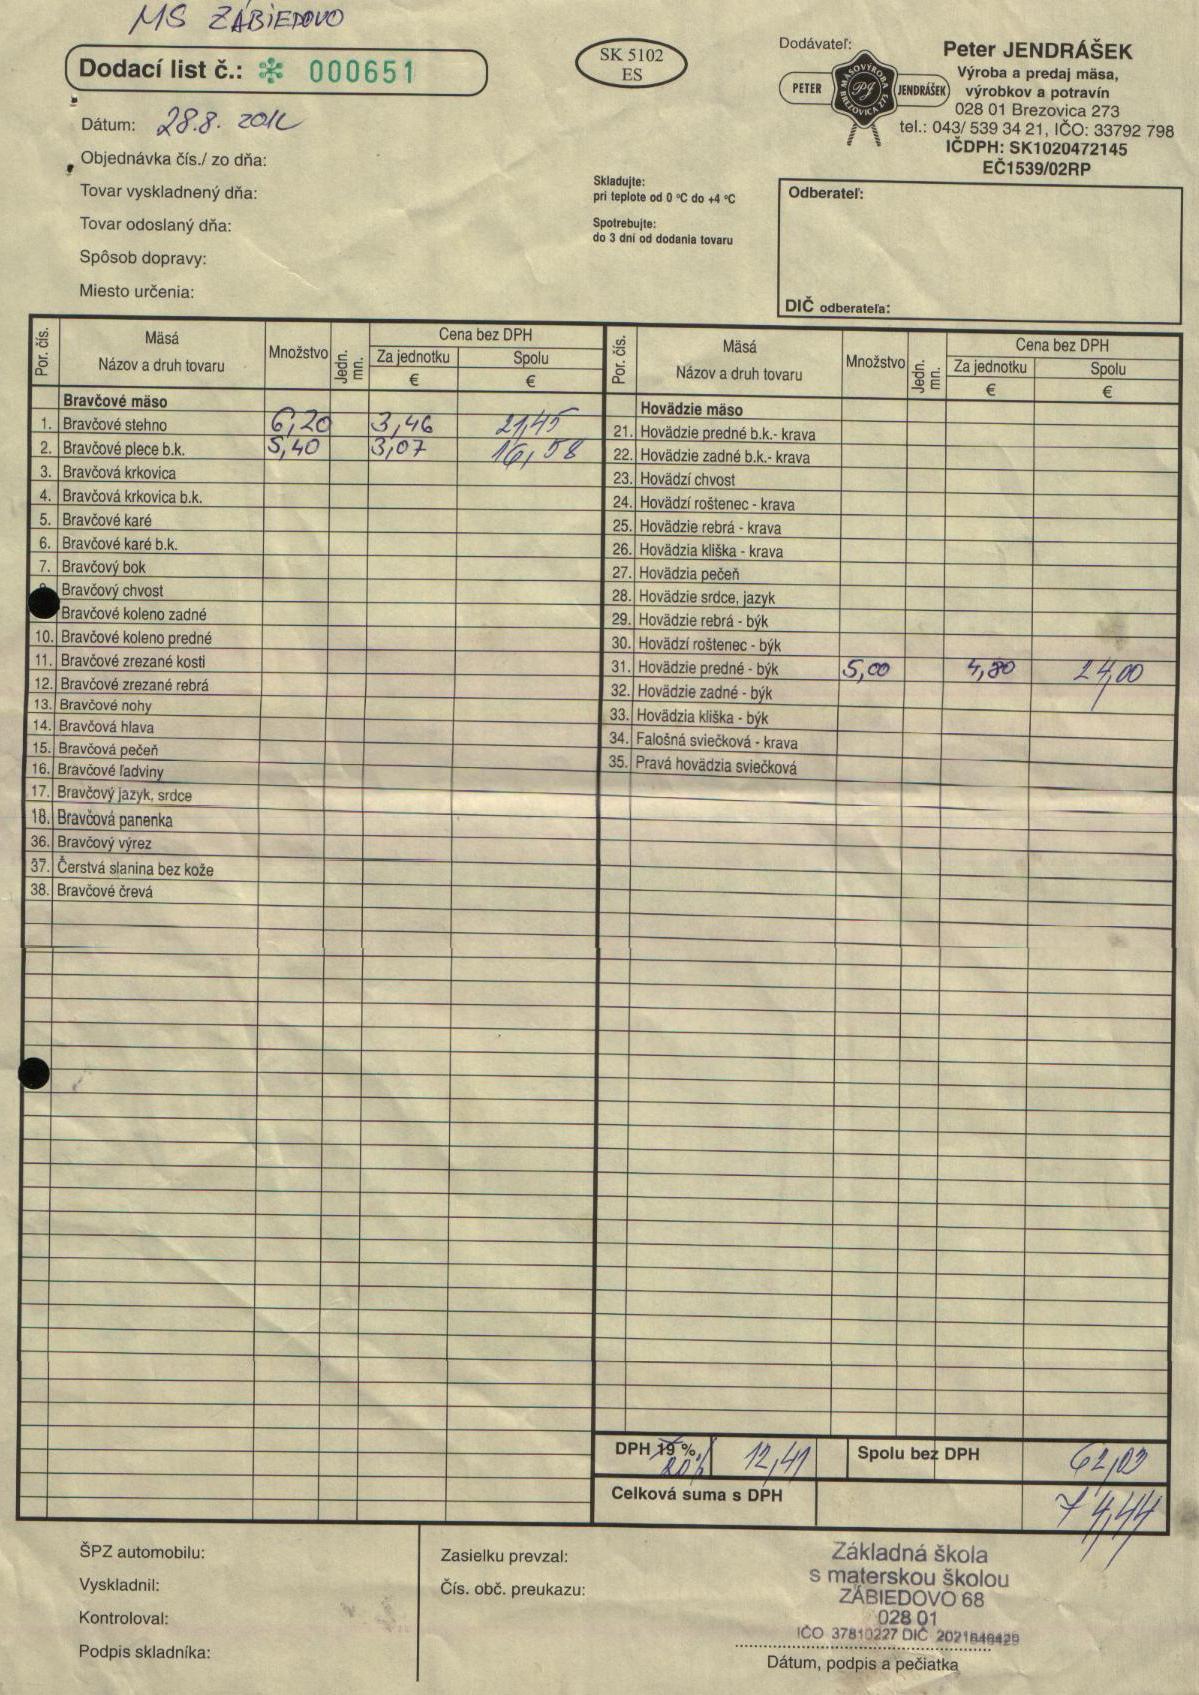 MS ZÁBIEDOVO
Dodací list č.: ✻ 000651
SK 5102
ES
Dodávateľ:
PETER
MÄSOVÝROBA
PJ
BREZOVICA 273
JENDRÁŠEK
Peter JENDRÁŠEK
Výroba a predaj mäsa,
výrobkov a potravín
028 01 Brezovica 273
tel.: 043/ 539 34 21, IČO: 33792 798
IČDPH: SK1020472145
EČ1539/02RP
Dátum: 28.8.
Objednávka čís./ zo dňa:
Tovar vyskladnený dňa:
Tovar odoslaný dňa:
Spôsob dopravy:
Miesto určenia:
Skladujte:
pri teplote od 0 °C do +4 °C
Spotrebujte:
do 3 dní od dodania tovaru
Odberateľ:
DIČ odberateľa:
Por. čís.
Mäsá
Názov a druh tovaru
Množstvo
Jedn. mn.
Cena bez DPH
Za jednotku
€
Spolu
€
Bravčové mäso
1. Bravčové stehno 6,20 3,46 21,45
2. Bravčové plece b.k. 5,40 3,07 16,58
3. Bravčová krkovica
4. Bravčová krkovica b.k.
5. Bravčové karé
6. Bravčové karé b.k.
7. Bravčový bok
Bravčový chvost
Bravčové koleno zadné
10. Bravčové koleno predné
11. Bravčové zrezané kosti
12. Bravčové zrezané rebrá
13. Bravčové nohy
14. Bravčová hlava
15. Bravčová pečeň
16. Bravčové ľadviny
17. Bravčový jazyk, srdce
18. Bravčová panenka
36. Bravčový výrez
37. Čerstvá slanina bez kože
38. Bravčové črevá
Por. čís.
Mäsá
Názov a druh tovaru
Množstvo
Jedn. mn.
Cena bez DPH
Za jednotku
€
Spolu
€
Hovädzie mäso
21. Hovädzie predné b.k.- krava
22. Hovädzie zadné b.k.- krava
23. Hovädzí chvost
24. Hovädzí roštenec - krava
25. Hovädzie rebrá - krava
26. Hovädzia kliška - krava
27. Hovädzia pečeň
28. Hovädzie srdce, jazyk
29. Hovädzie rebrá - býk
30. Hovädzí roštenec - býk
31. Hovädzie predné - býk 5,00 4,80 24,00
32. Hovädzie zadné - býk
33. Hovädzia kliška - býk
34. Falošná sviečková - krava
35. Pravá hovädzia sviečková
DPH 19 %, 12,41 Spolu bez DPH 62,03
20%
Celková suma s DPH 74,44
ŠPZ automobilu:
Vyskladnil:
Kontroloval:
Podpis skladníka:
Zasielku prevzal:
Čís. obč. preukazu:
Základná škola
s materskou školou
ZÁBIEDOVO 68
028 01
IČO 37810227 DIČ
Dátum, podpis a pečiatka